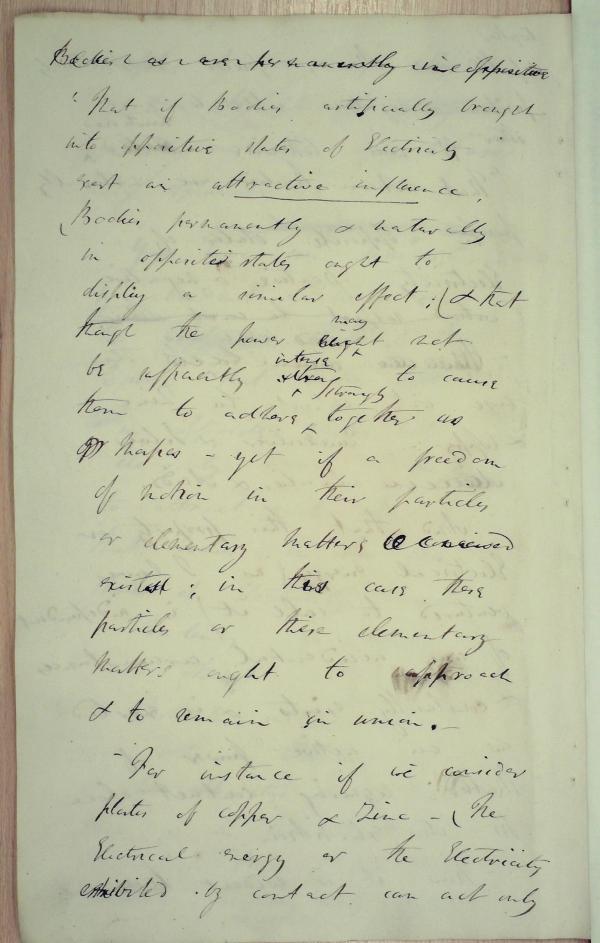 Bodies as are permanently in opposite
"That if Bodies artificially brought
into opposite states of Electricity
exert an attractive influence,
(Bodies permanently & naturally
in opposite states ought to
display a similar effect; (& that
though the power may not
be sufficiently intense to cause
them to adhere strongly together as
Masses - yet if a freedom
of motion in their particles
or elementary matters
exist; in this case these
particles or these elementary
matters ought to approach
& to remain in union. -
- For instance if we consider
plates of copper & Zinc - (The
Electrical energy or the Electricity
exhibited by contact can act only